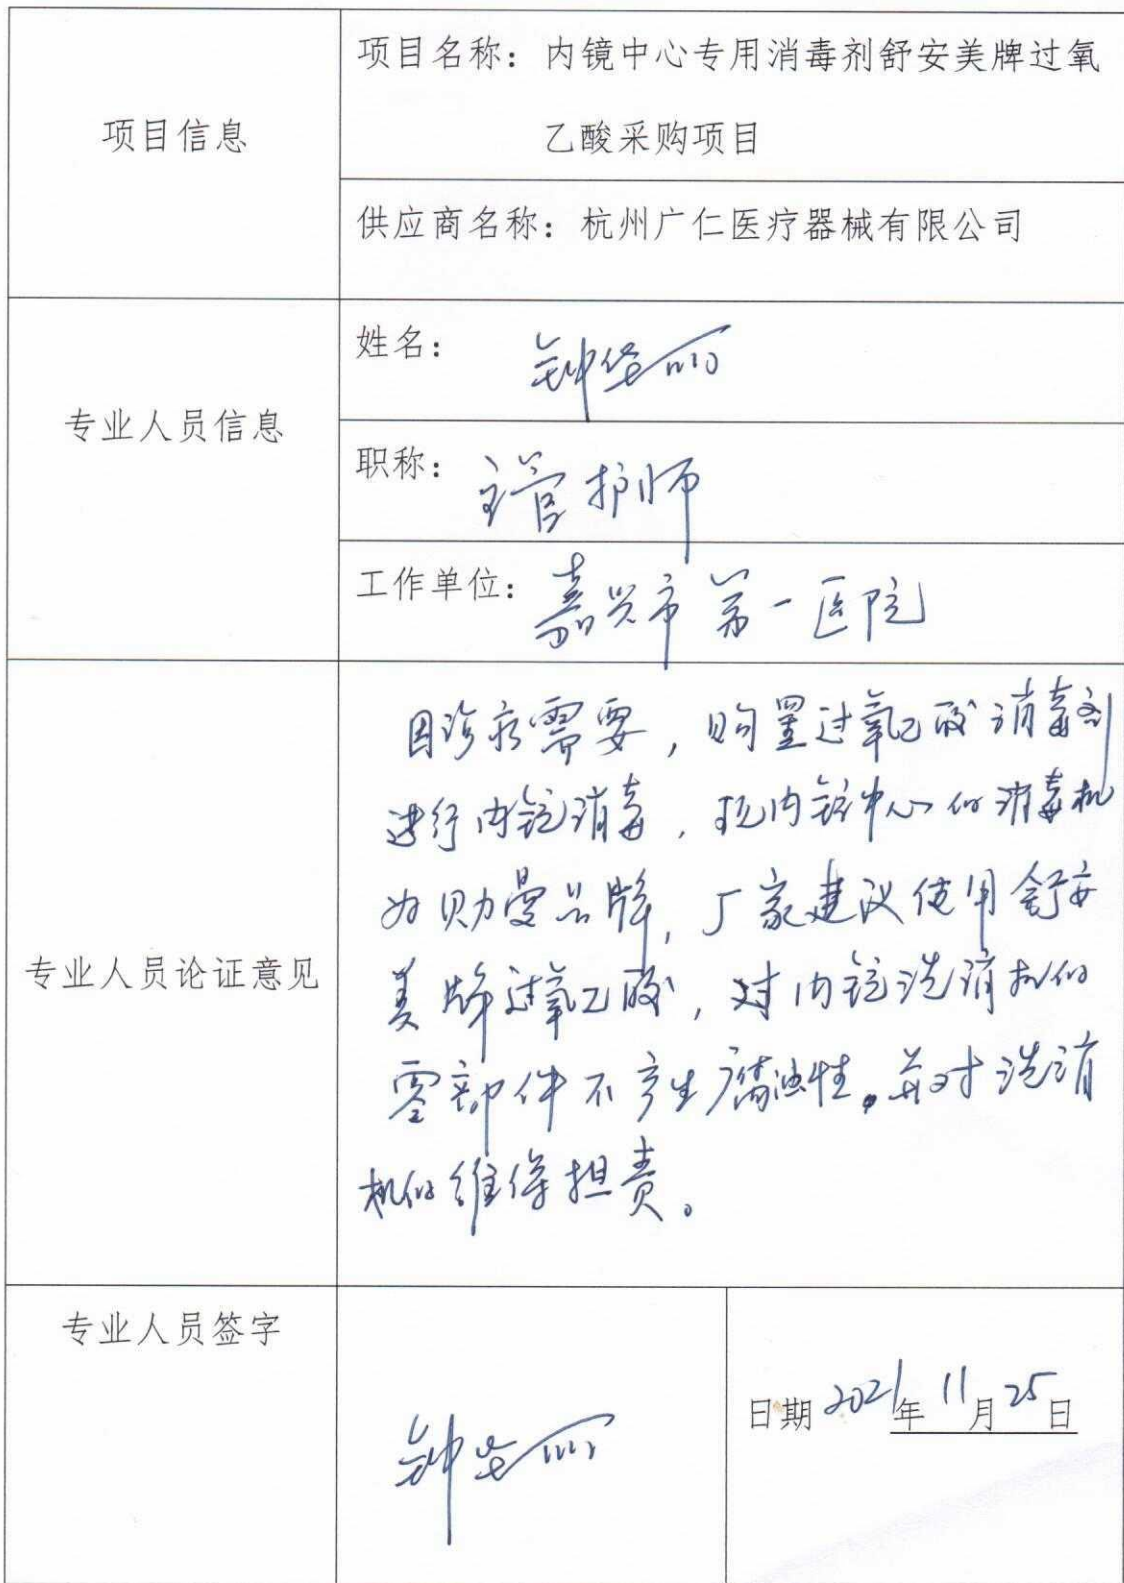 项目信息
项目名称：内镜中心专用消毒剂舒安美牌过氧
乙酸采购项目
供应商名称：杭州广仁医疗器械有限公司
专业人员信息
姓名：钟华丽
职称：主管护师
工作单位：嘉兴市第一医院
专业人员论证意见
因诊疗需要，购置过氧乙酸消毒剂
进行内镜消毒，现内镜中心的消毒机
为勋曼品牌，厂家建议使用舒安
美牌过氧乙酸，对内镜洗消机的
零部件不产生腐蚀性。并对洗消
机的维保担责。
专业人员签字
钟华丽
日期2021年11月25日